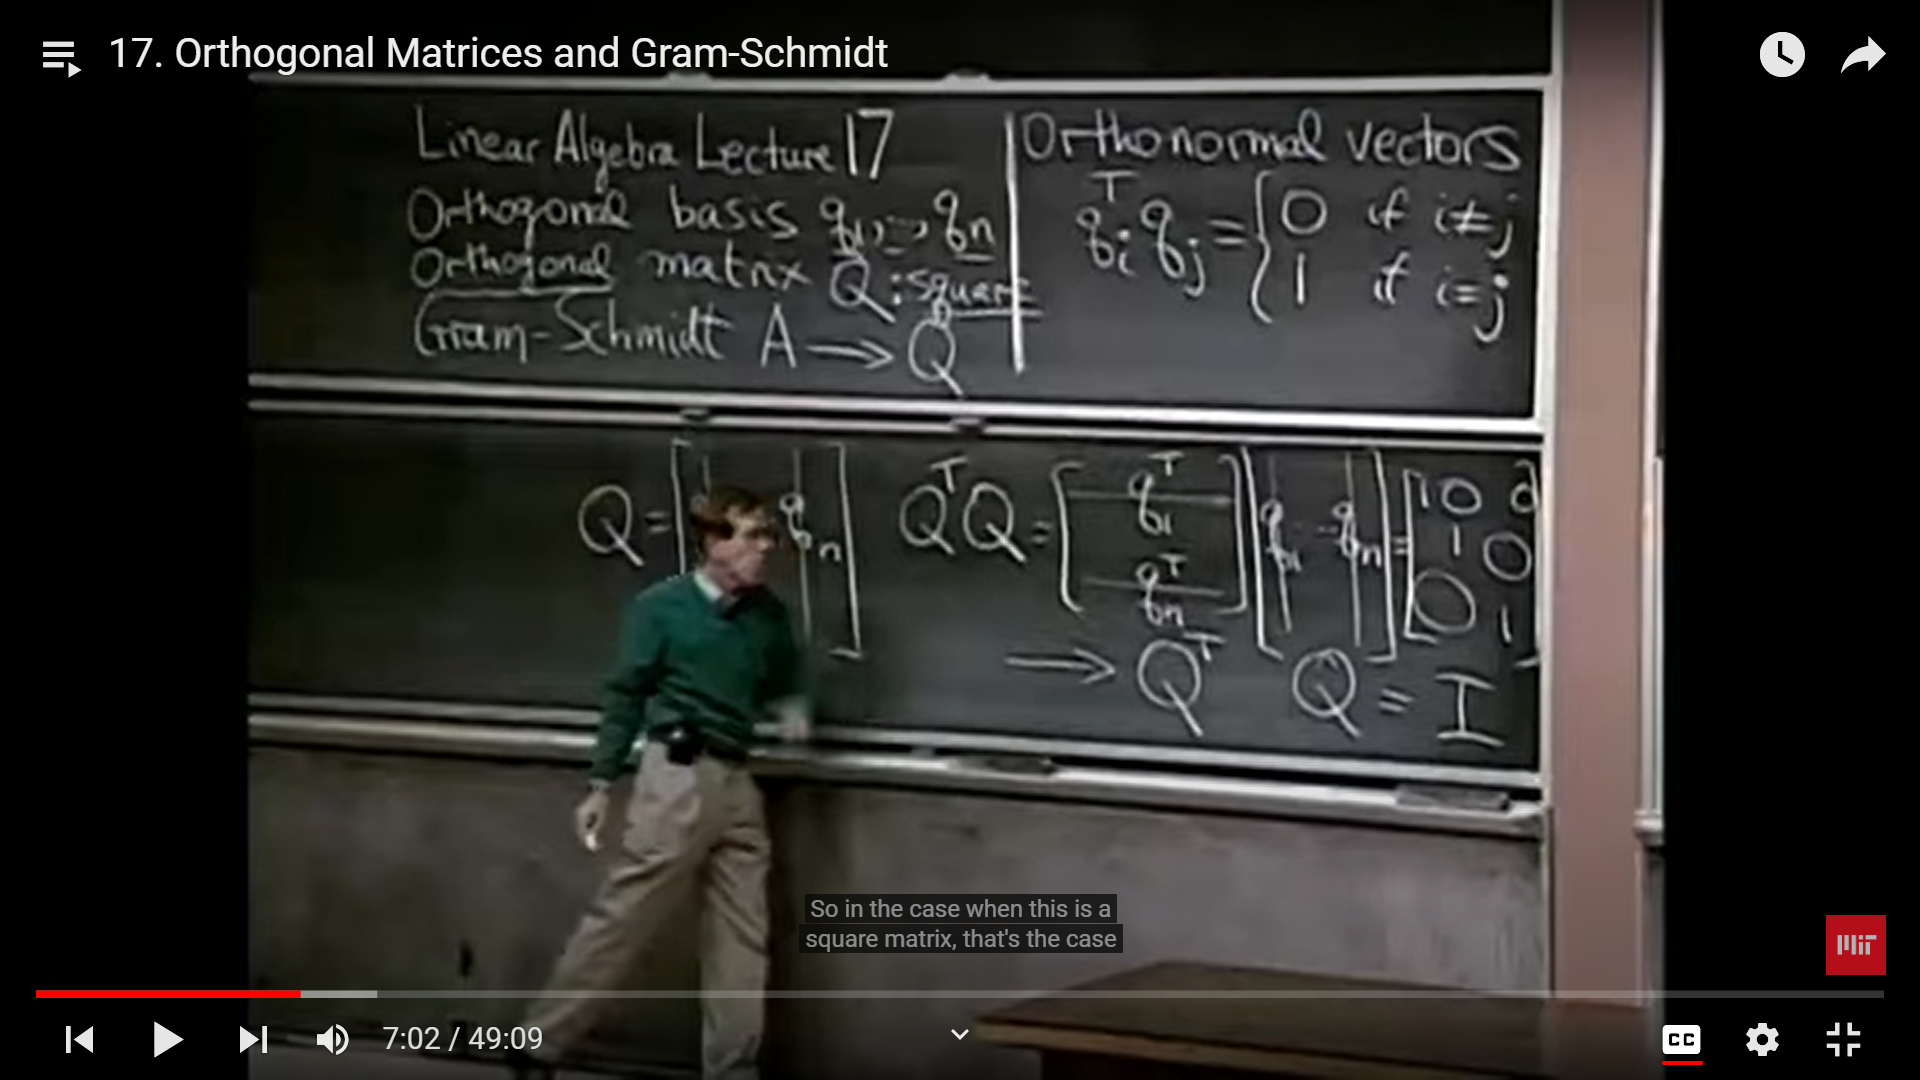 17. Orthogonal Matrices and Gram-Schmidt
Linear Algebra Lecture 17
Orthogonal basis q₁, ..., qₙ
Orthogonal matrix Q: square
Gram-Schmidt A → Q
Orthonormal vectors
qᵢᵀ qⱼ = { 0 if i ≠ j
1 if i = j
Q = [ qₙ ]
QᵀQ = [ q₁ᵀ qₙᵀ ] [ q₁ -- qₙ ] = [ 1 0 0 1 0 0 1 ]
→ Qᵀ Q = I
So in the case when this is a
square matrix, that's the case
MIT
7:02 / 49:09
CC